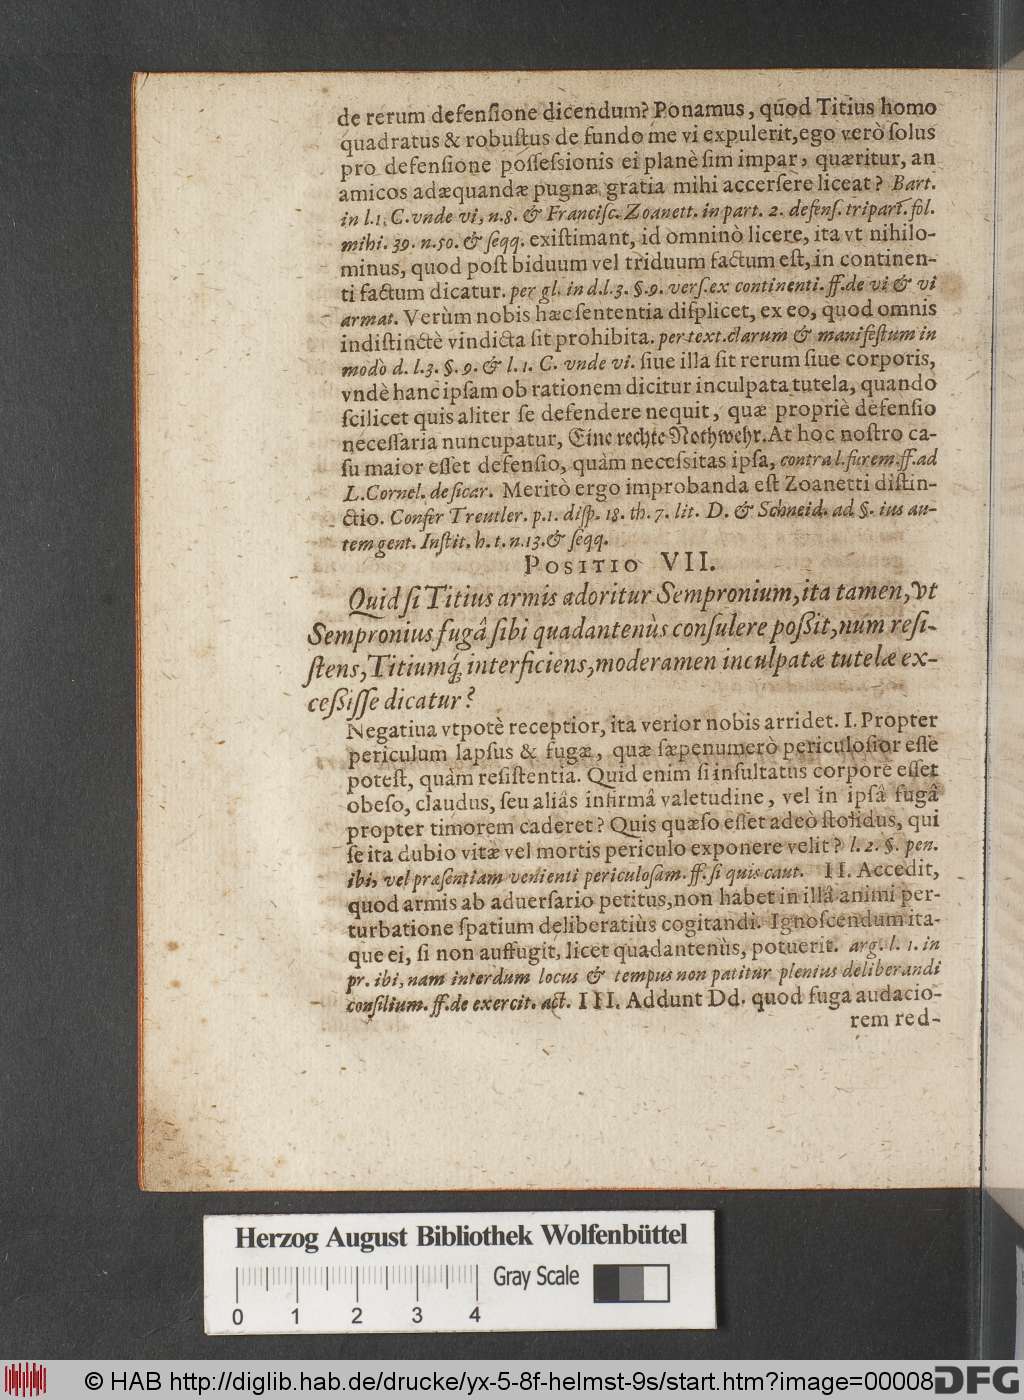 de rerum defenſione dicendum? Ponamus, quòd Titius homo
quadratus & robuſtus de fundo me vi expulerit, ego verò ſolus
pro defenſione poſſeſsionis ei planè ſim impar, quæritur, an
amicos adæquandæ pugnæ gratia mihi accerſere liceat? Bart.
in l. 1. C. vnde vi, n. 8. & Franciſc. Zoanett. in part. 2. defenſ. tripart. fol.
mihi. 39. n. 50. & ſeqq. exiſtimant, id omninò licere, ita vt nihilo-
minus, quod poſt biduum vel triduum factum eſt, in continen-
ti factum dicatur. per gl. in d. l. 3. §. 9. verſ. ex continenti. ff. de vi & vi
armat. Verùm nobis hæc ſententia diſplicet, ex eo, quod omnis
indiſtinctè vindicta ſit prohibita. per text. clarum & manifeſtum in
modò d. l. 3. §. 9. & l. 1. C. vnde vi. ſiue illa ſit rerum ſiue corporis,
vndè hanc ipſam ob rationem dicitur inculpata tutela, quando
ſcilicet quis aliter ſe defendere nequit, quæ propriè defenſio
neceſſaria nuncupatur, Eine rechte Nothwehr. At hoc noſtro ca-
ſu maior eſſet defenſio, quàm neceſsitas ipſa, contra l. furem. ff. ad
L. Cornel. de ſicar. Meritò ergo improbanda eſt Zoanetti diſtin-
ctio. Confer Treutler. p. 1. diſp. 18. th. 7. lit. D. & Schneid. ad §. ius au-
tem gent. Inſtit. h. t. n. 13. & ſeqq.
POSITIO VII.
Quid ſi Titius armis adoritur Sempronium, ita tamen, vt
Sempronius fugâ ſibi quadantenùs conſulere poßit, num reſi-
ſtens, Titiumq́; interficiens, moderamen inculpatæ tutelæ ex-
ceßiſſe dicatur?
Negatiua vtpotè receptior, ita verior nobis arridet. I. Propter
periculum lapſus & fugæ, quæ ſæpenumerò periculoſior eſſe
poteſt, quàm reſiſtentia. Quid enim ſi inſultatus corpore eſſet
obeſo, claudus, ſeu aliâs infirmâ valetudine, vel in ipſâ fugâ
propter timorem caderet? Quis quæſo eſſet adeò ſtolidus, qui
ſe ita dubio vitæ vel mortis periculo exponere velit? l. 2. §. pen.
ibi, vel præſentiam venienti periculoſam. ff. ſi quis caut. II. Accedit,
quod armis ab aduerſario petitus, non habet in illâ animi per-
turbatione ſpatium deliberatiùs cogitandi. Ignoſcendum ita-
que ei, ſi non auffugit, licet quadantenùs, potuerit. arg. l. 1. in
pr. ibi, nam interdum locus & tempus non patitur plenius deliberandi
conſilium. ff. de exercit. act. III. Addunt Dd. quod fuga audacio-
rem red-
Herzog August Bibliothek Wolfenbüttel
Gray Scale
0 1 2 3 4
© HAB http://diglib.hab.de/drucke/yx-5-8f-helmst-9s/start.htm?image=00008
DFG